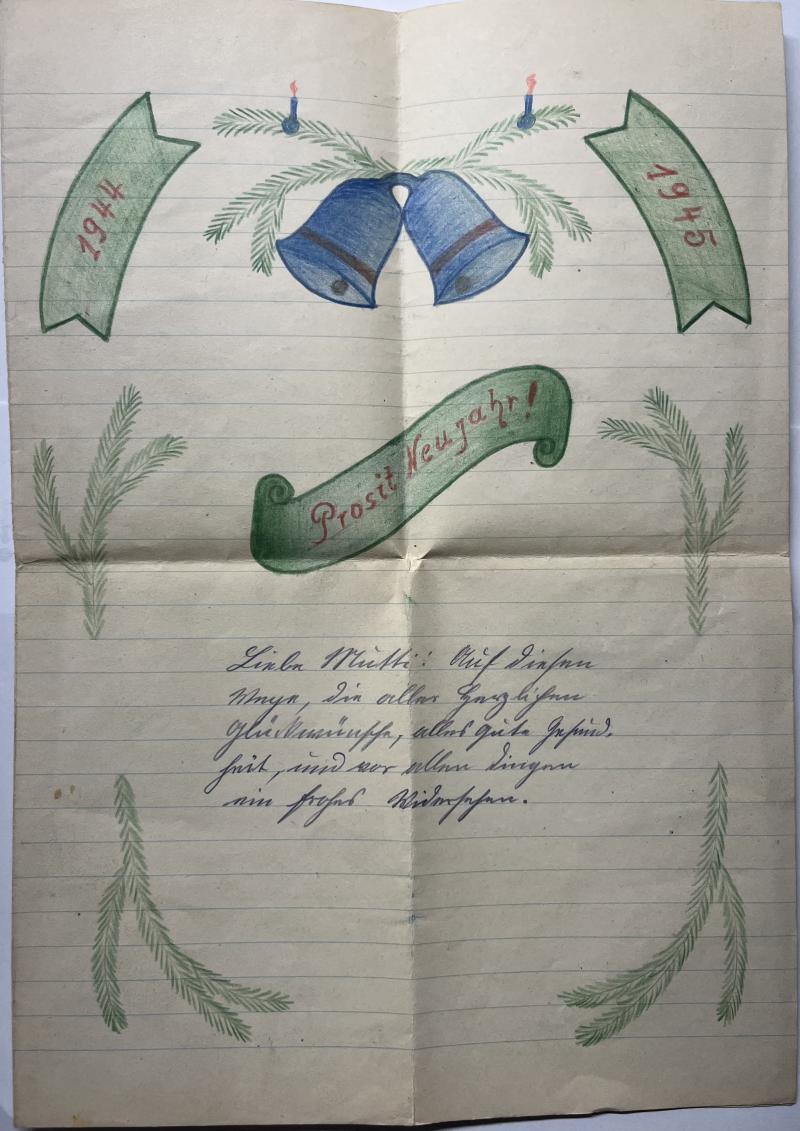 1944
1945
Prosit Neujahr!
Liebe Mutti! Auf diesen
Wege, die aller Herzlichen
Glückwünsche, alles gute Gesund-
heit, und vor allen dingen
ein frohes Widersehen.